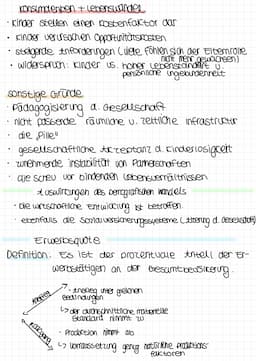 Konsumdenken + Lebenswandel
• Kinder stellen einen Kostenfaktor dar
• Kinder verursachen Opportunitätskosten
• steigende Anforderungen (viele fühlen sich der Elternrolle
nicht mehr gewachsen)
• Widerspruch: Kinder vs. hoher Lebensstandard u.
persönliche Ungebundenheit
sonstige Gründe
• Pädagogisierung d. Gesellschaft
• nicht passende räumliche u. zeitliche Infrastruktur
• die „Pille"
• gesellschaftliche Akzeptanz d. Kinderlosigkeit
• zunehmende Instabilität von Partnerschaften
• die Scheu vor bindenden Lebensverhältnissen
Auswirkungen des demografischen Wandels
• die wirtschaftliche Entwicklung ist betroffen
• ebenfalls die Sozialversicherungssysteme (Alterung d. Gesellschaft)
Erwerbsquote
Definition: Es ist der prozentuale Anteil der Er-
werbstätigen an der Gesamtbevölkerung.
Anstieg
• Anstieg unter gleichen
Bedingungen
↳ der durchschnittliche materielle
Standard nimmt zu
• Produktion nimmt zu
↳ Vorraussetzung: genug natürliche Produktions-
faktoren